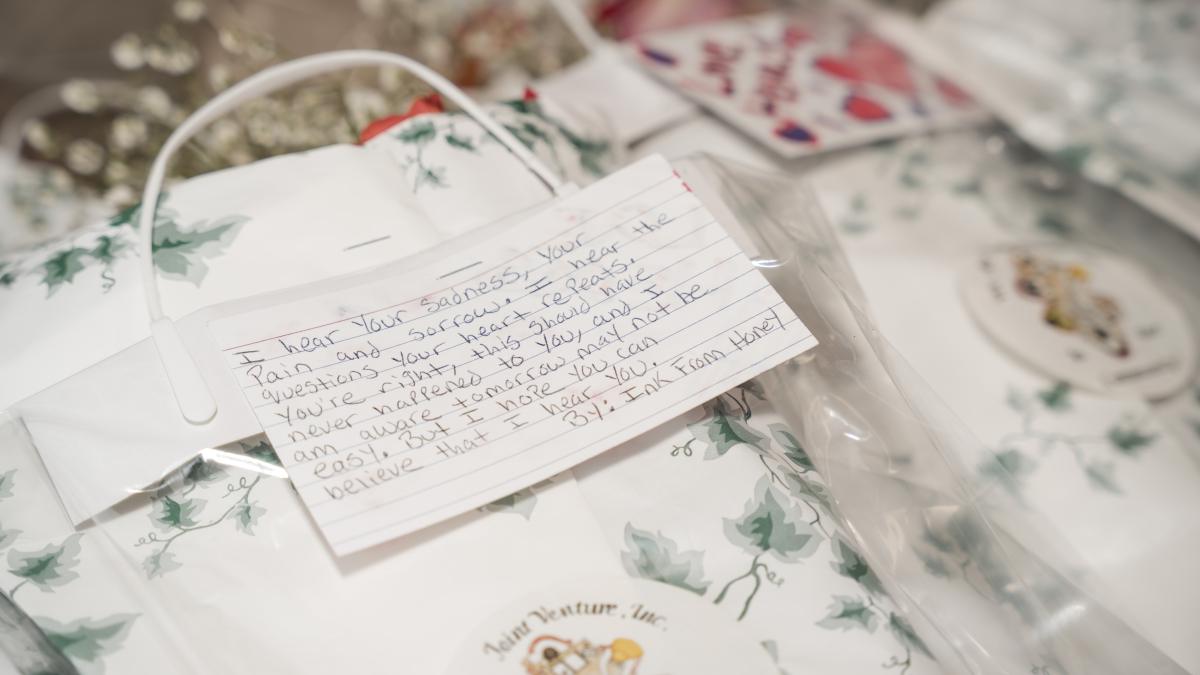 I hear your sadness, your
pain and sorrow. I hear the
questions your heart repeats.
You're right, this should have
never happened to you, and I
am aware tomorrow may not be
easy. But I hope you can
believe that I hear you.
By: Ink From Honey
Joint Venture, Inc.